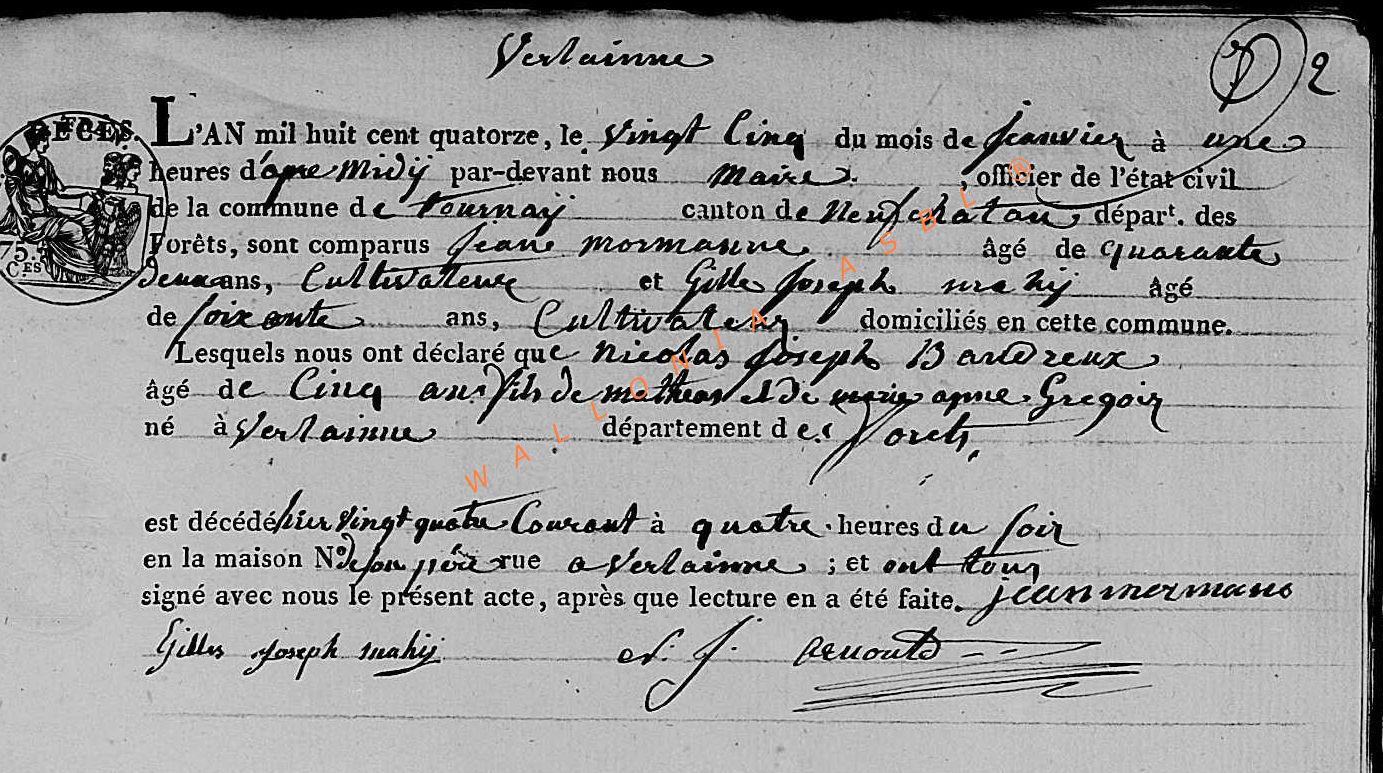 Verlainne
2
DECES.
L'AN mil huit cent quatorze, le vingt Cinq du mois de janvier à une
heures d'apre Midij par-devant nous maire. , officier de l'état civil
de la commune de tournaij canton de Neufchatau départ. des
Forêts, sont comparus jeane mormanne âgé de quarante
deux ans, Cultivateure et Gille joseph mahij âgé
de soixante ans, Cultivateur domiciliés en cette commune.
Lesquels nous ont déclaré que nicolas joseph Bandreux
âgé de Cinq ans fils de matheas et de marie anne Gregoir
né à Verlainne département des forets,
est décédé hier vingt quatre Courant à quatre heures du soir
en la maison No. de son pére rue a Verlainne ; et ont tous
signé avec nous le présent acte, après que lecture en a été faite. jean mormans
Gilles joseph mahij N. J. Arnould
75.
CES
WALLONIA ASBL ®